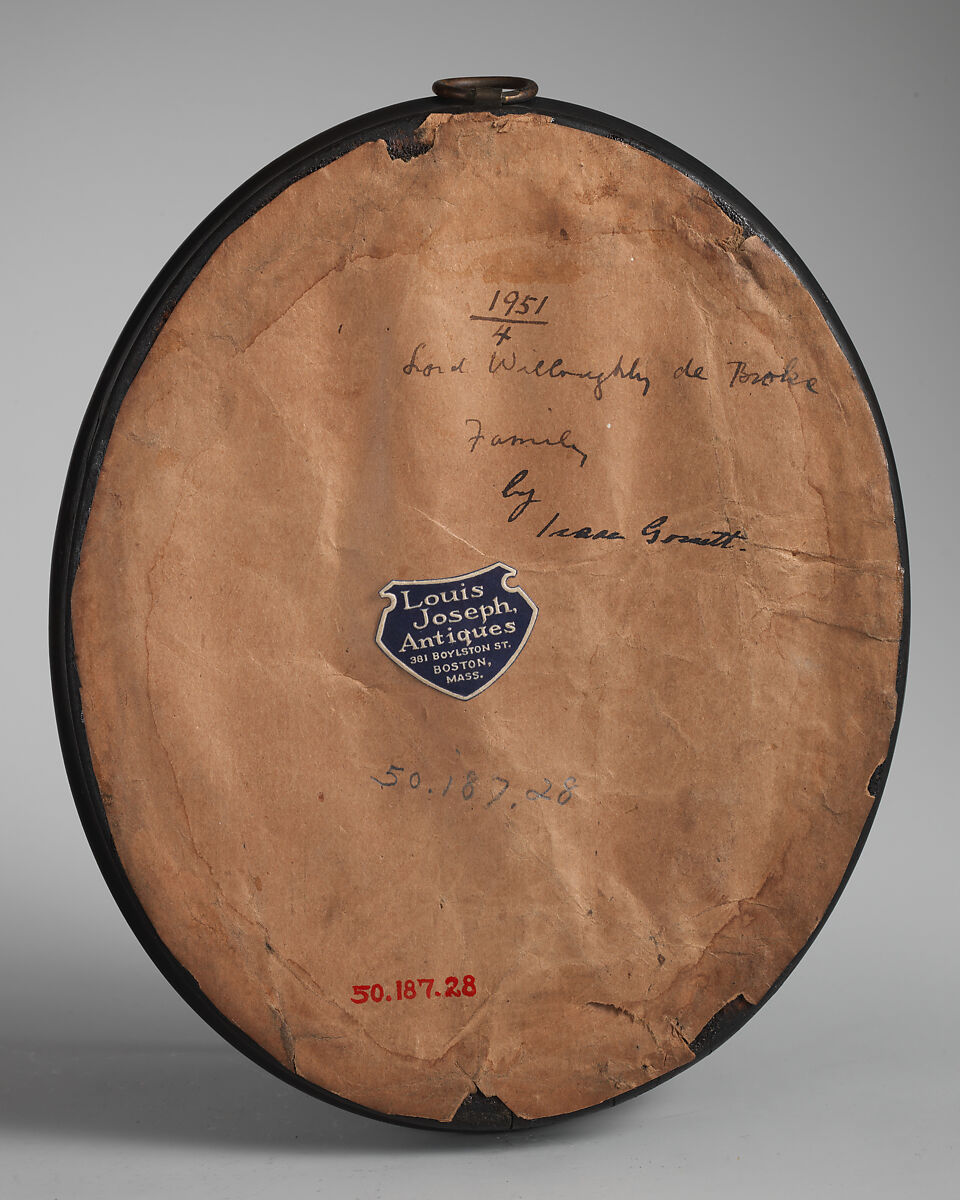 1951
4
Lord Willoughby de Broke
Family
by
Isaac Gosset.
Louis
Joseph,
Antiques
381 BOYLSTON ST.
BOSTON,
MASS.
50.187.28
50.187.28